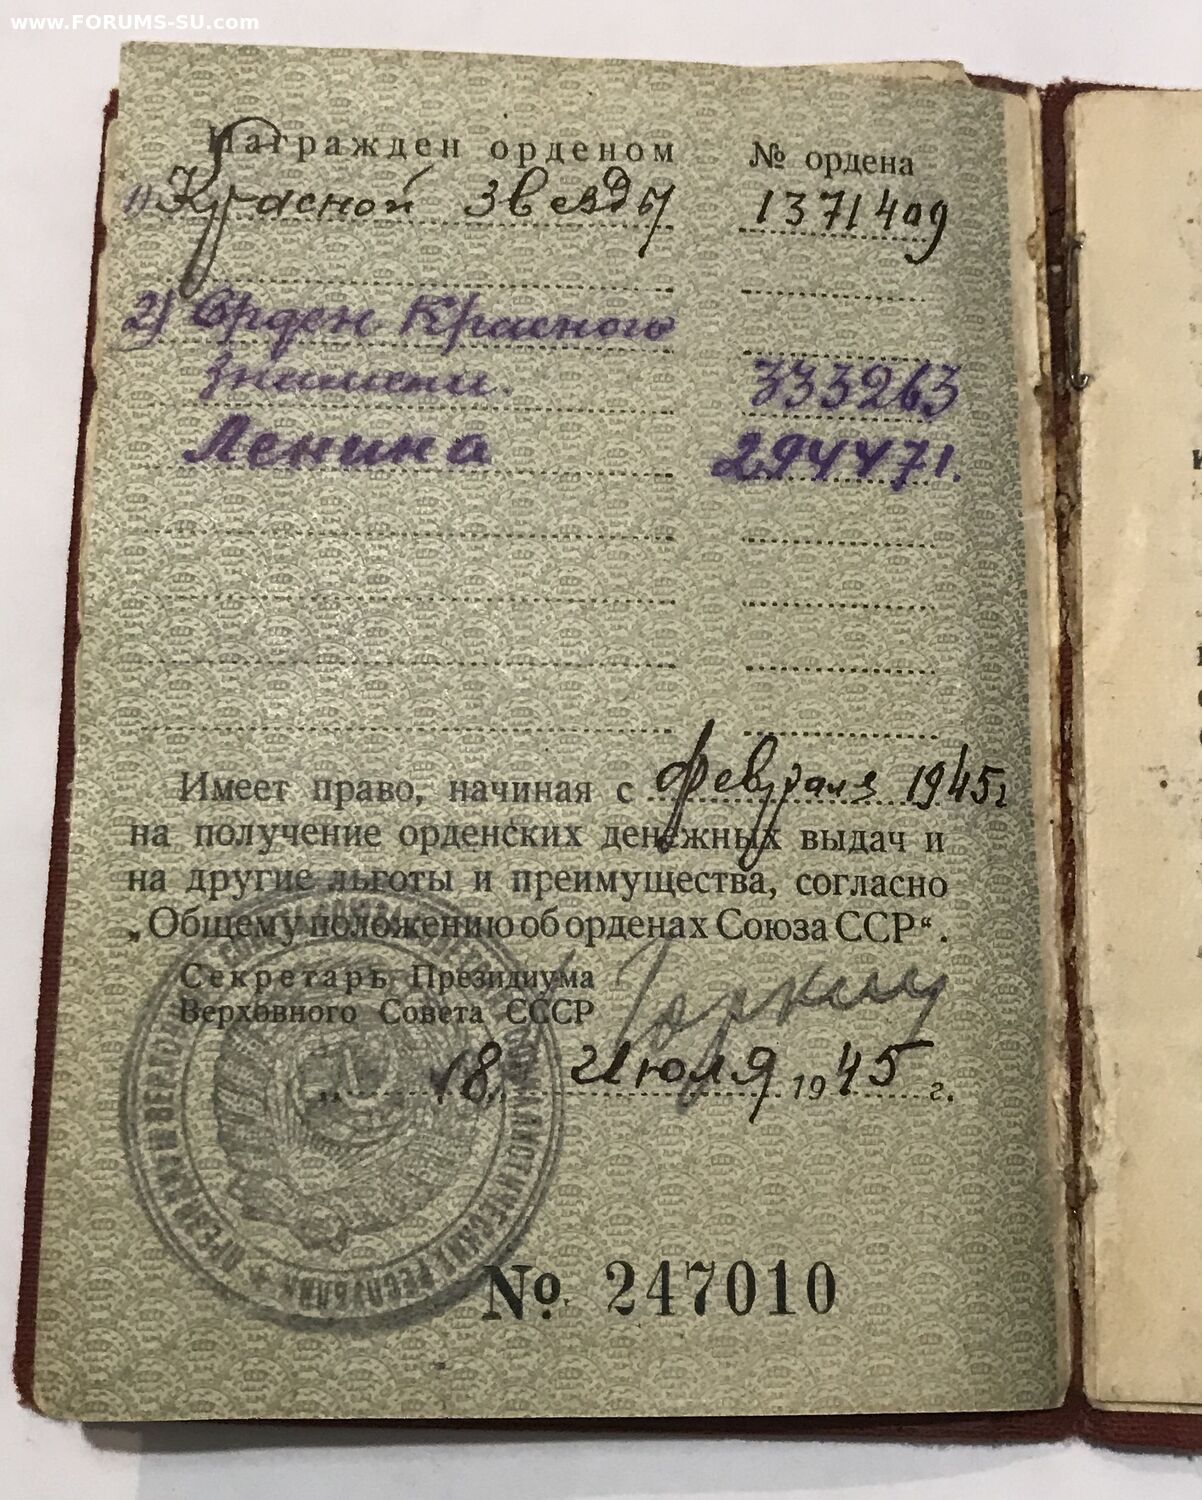 www.FORUMS-SU.com
Награжден орденом № ордена
1) Красной звезды 1371409
2) Орден Красного
Знамени. 333263
Ленина 294471.
Имеет право, начиная с февраля 1945 г
на получение орденских денежных выдач и
на другие льготы и преимущества, согласно
„Общему положению об орденах Союза ССР“.
Секретарь Президиума
Верховного Совета СССР Горкин
„18“ Июля 1945 г.
ПРЕЗИДИУМ ВЕРХОВНОГО
СОЦИАЛИСТИЧЕСКИХ РЕСПУБЛИК
№ 247010